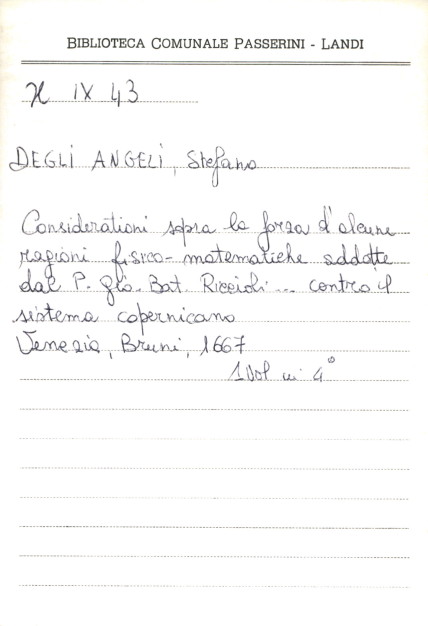 BIBLIOTECA COMUNALE PASSERINI - LANDI
H IX 43
DEGLI ANGELI, Stefano
Considerationi sopra la forza d'alcune
ragioni fisico-matematiche addotte
dal P. Gio. Bat. Riccioli ... contro il
sistema copernicano
Venezia, Bruni, 1667
1 Vol in 4°